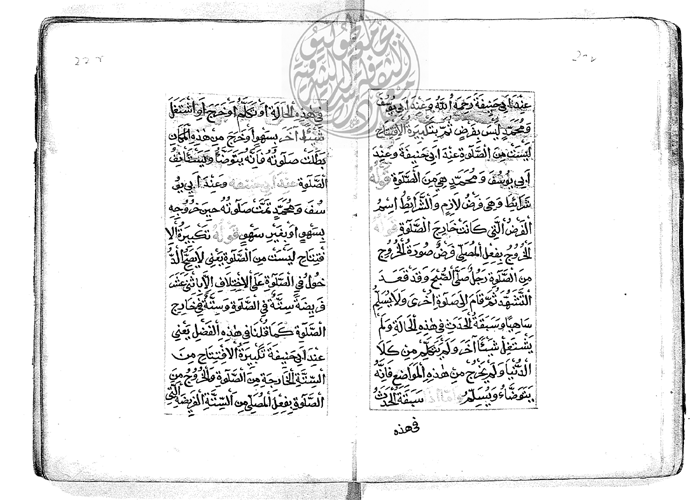 عند ابي حنيفة رحمه الله وعند ابي يوسف
ومحمد ليس بفرض ثم تكبيرة الافتتاح
ليست من الصلوة عند ابي حنيفة وعند
ابي يوسف ومحمد هي من الصلوة قوله
شرائط وهي فرض لازم والشرائط اسم
الفرض التي كانت خارج الصلوة قوله
الخروج بفعل المصلي فرض صورة الخروج
من الصلوة رجل صلى الصبح وقد قعد
التشهد ثم قام الى صلوة اخرى ولا يسلم
ساهيا وسبقه الحدث في هذه الحالة ولم
يشتغل شيئا آخر ولم يتكلم من كلا
الدنيا ولم يخرج من هذه المواضع فانه
يتوضاء ويسلم واما اذا سبقه الحدث
في هذه
في هذه الحالة او تكلم او خرج او اشتغل
شيئا آخر بسهو او خرج من هذه المكان
بطلت صلوته فانه يتوضأ ويستأنف
الصلوة عند ابي حنيفة وعند ابي يو
سف ومحمد تمت صلوته حين خروجه
بسهو او بغير سهو قوله تكبيرة الا
فتتاح ليست من الصلوة يعني لا يصح الد
خول في الصلوة على الاختلاف الا باثني عشر
فريضة ستة في الصلوة وستة في خارج
الصلوة كما قلنا في هذه الفصل يعني
عند ابي حنيفة تكبيرة الافتتاح من
الستة الخارجة من الصلوة والخروج من
الصلوة بفعل المصلي من الستة الفريضة التي